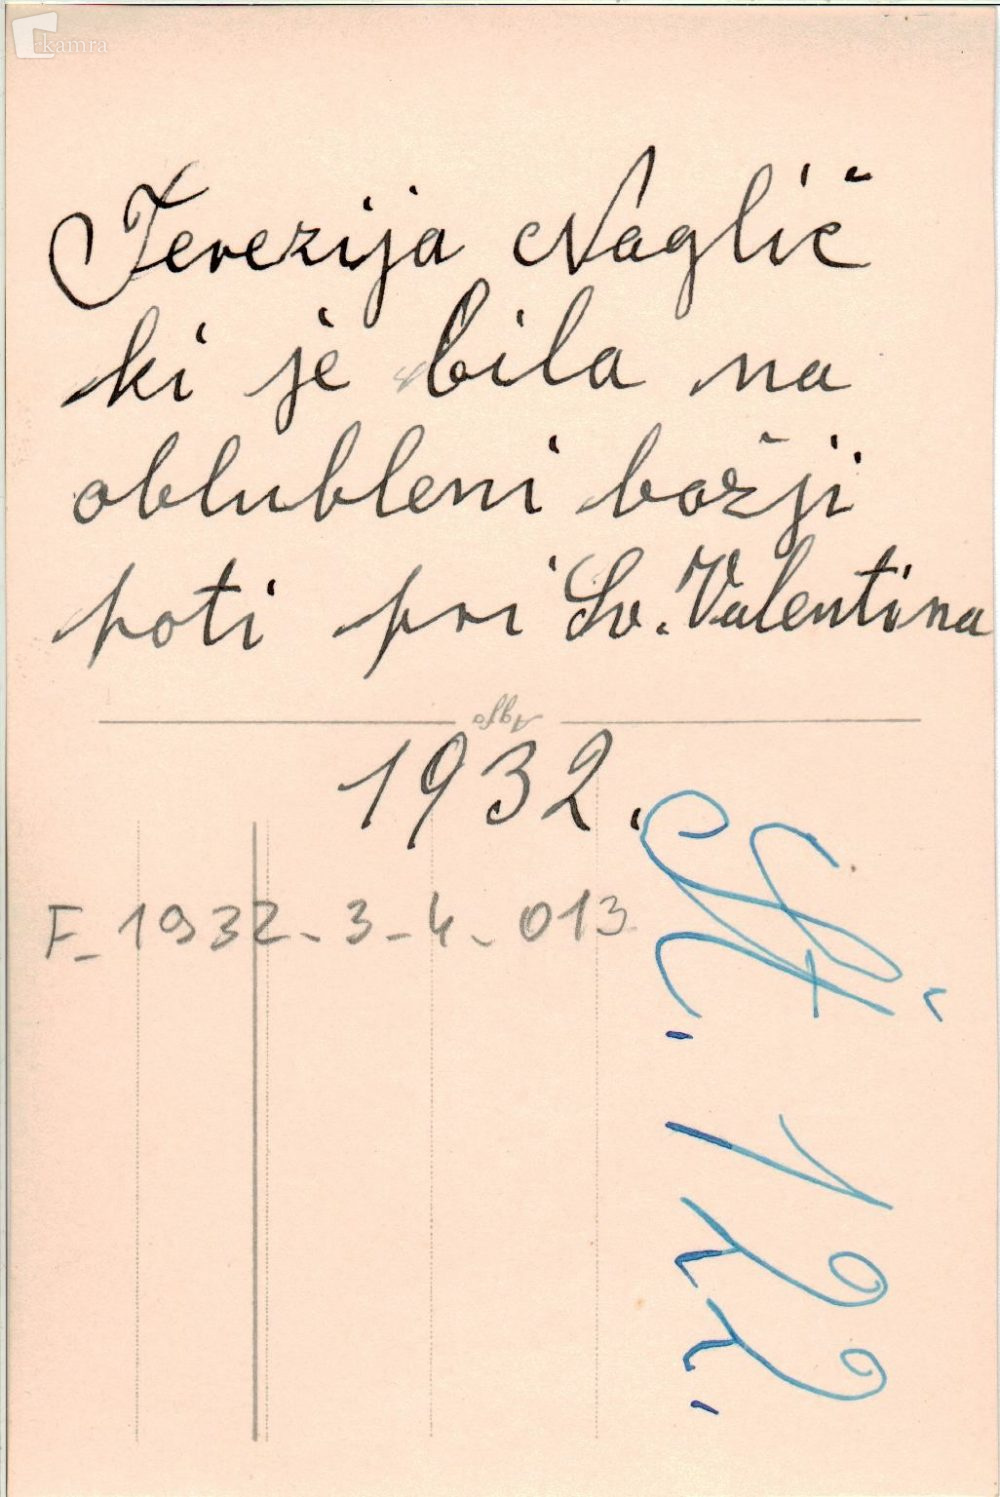 kamra
Terezija Naglič
ki je bila na
oblubleni božji
poti pri Sv. Valentina
1932.
F-1932-3-4-013
Št. 122.